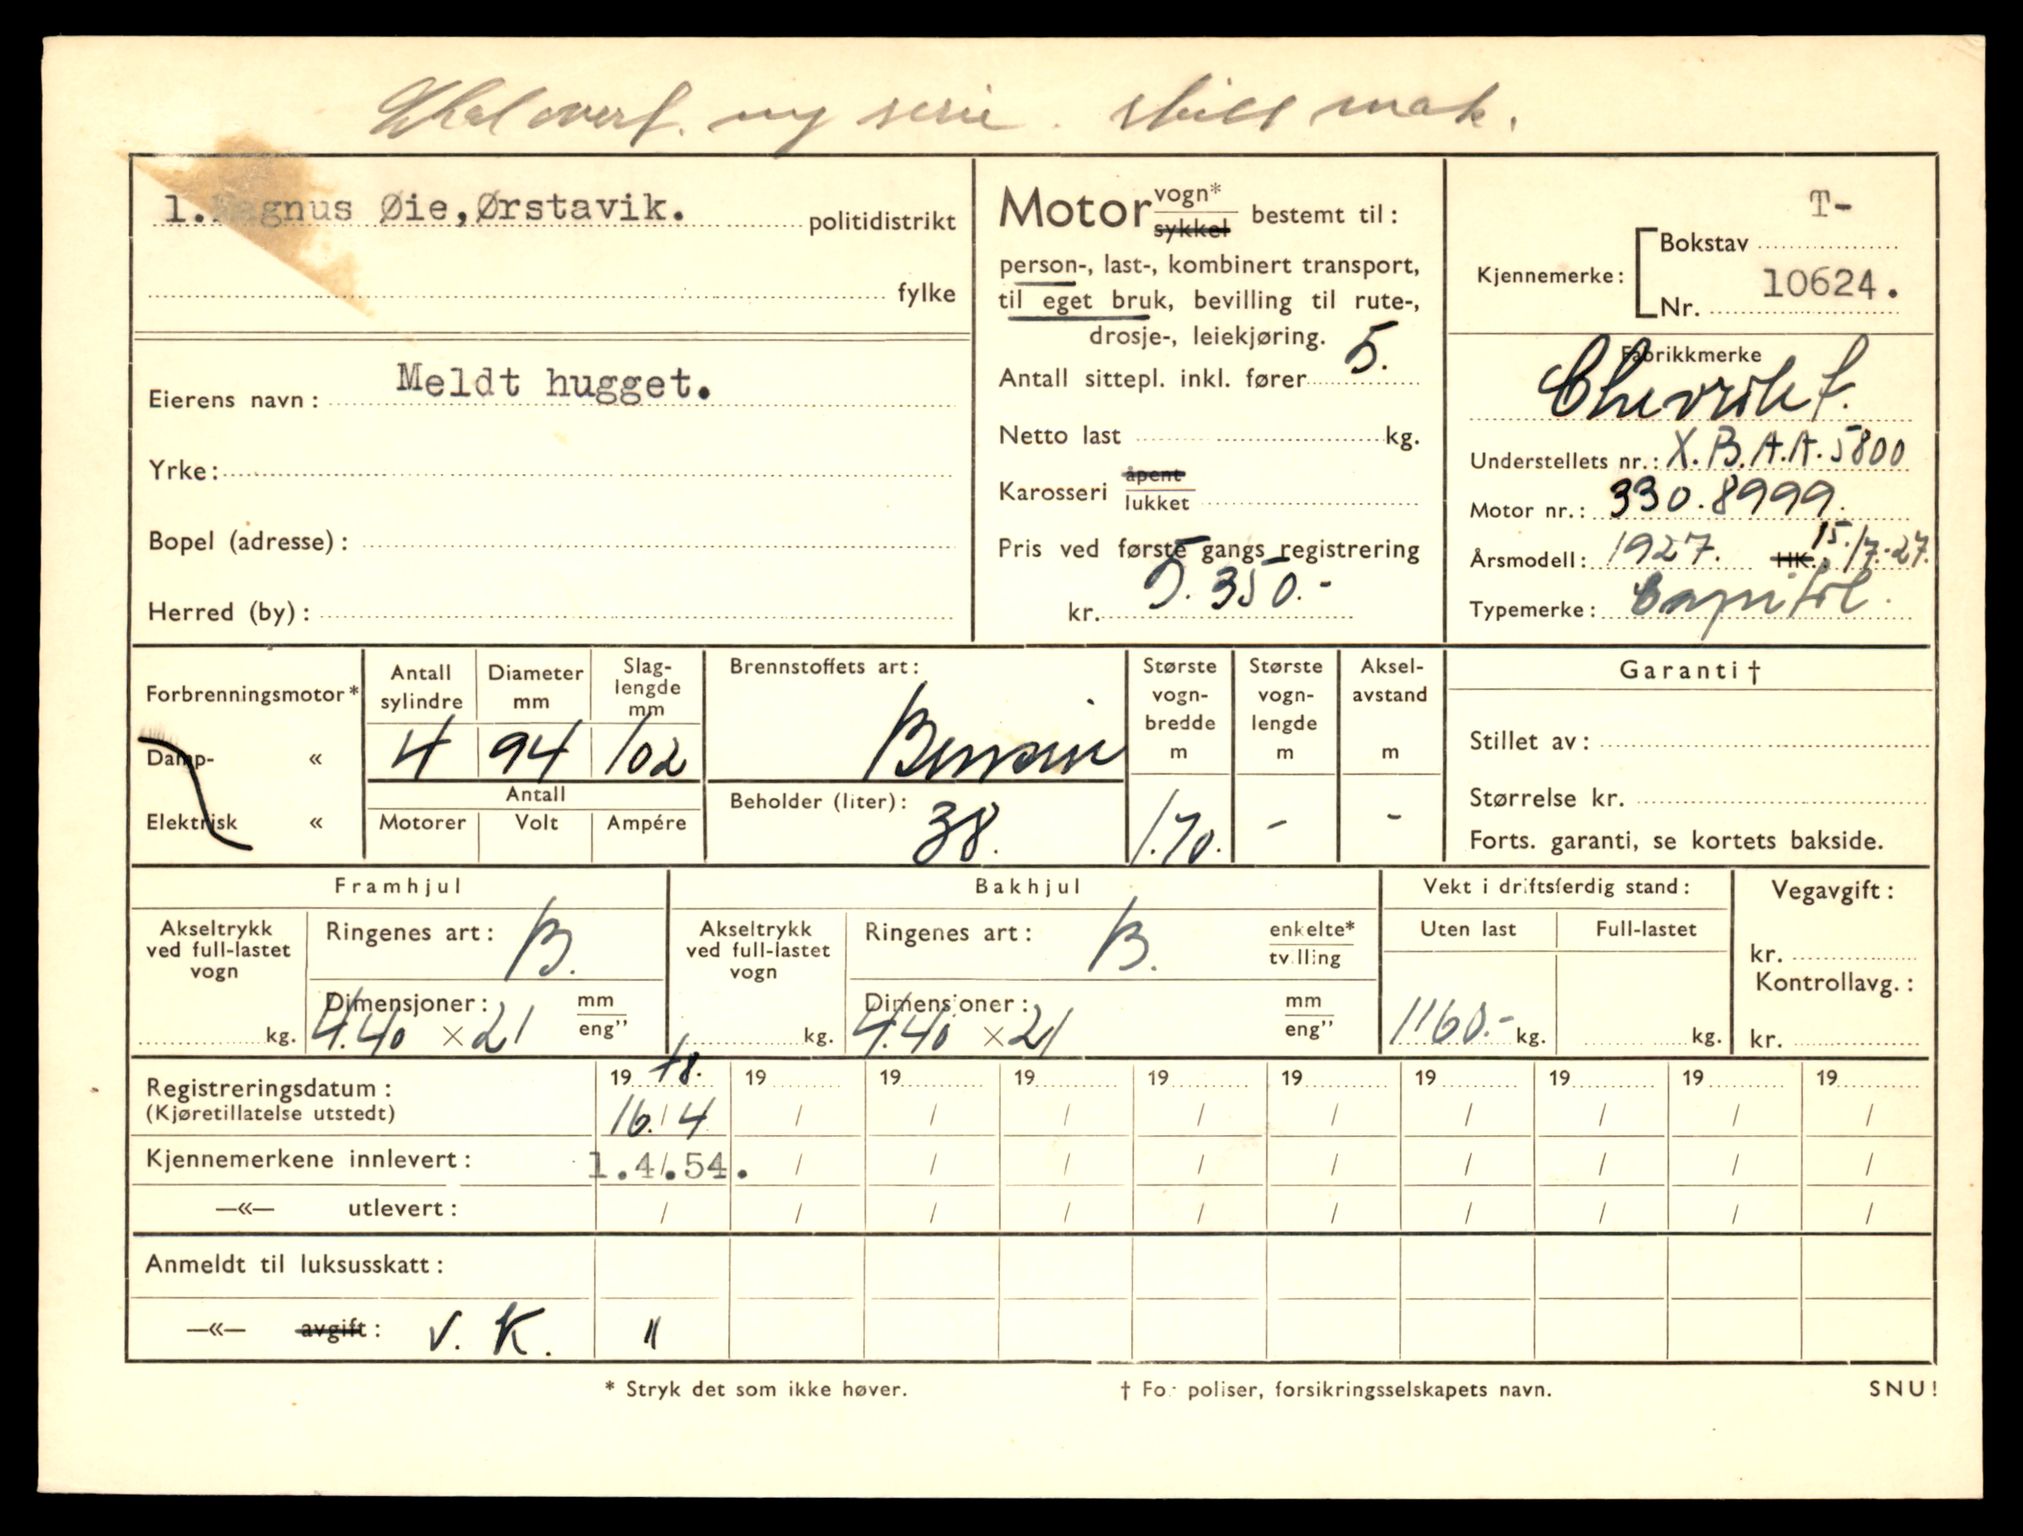 overf. ny serie.
1.Magnus Øie,Ørstavik. politidistrikt
fylke
Eierens navn: Meldt hugget.
Yrke:
Bopel (adresse):
Herred (by):
Motor vogn* sykkel bestemt til:
person-, last-, kombinert transport,
til eget bruk, bevilling til rute-,
drosje-, leiekjøring.
Antall sittepl. inkl. fører 5.
Netto last kg.
Karosseri åpent lukket
Pris ved første gangs registrering
kr. 5.350.-
Kjennemerke: Bokstav T-
Nr. 10624.
Fabrikkmerke
Chevrolet.
Understellets nr.: X.B.A.A.5800
Motor nr.: 330.8999.
Årsmodell: 1927. HK. 15./7.-27.
Typemerke: Capitol.
Forbrenningsmotor*
Damp- «
Elektrisk «
Antall sylindre
4
Diameter mm
94
Slag-lengde mm
102
Antall
Motorer Volt Ampére
Brennstoffets art:
Bensin
Beholder (liter):
38.
Største vogn-bredde m
1.70.
Største vogn-lengde m
-
Aksel-avstand m
-
Garanti †
Stillet av:
Størrelse kr.
Forts. garanti, se kortets bakside.
Framhjul
Akseltrykk ved full-lastet vogn
kg.
Ringenes art: B.
Dimensjoner: mm eng”
4.40 × 21
Bakhjul
Akseltrykk ved full-lastet vogn
kg.
Ringenes art: B. enkelte* tvilling
Dimensjoner: mm eng”
4.40 × 21
Vekt i driftsferdig stand:
Uten last Full-lastet
1160.- kg. kg.
Vegavgift:
kr.
Kontrollavg.:
kr.
Registreringsdatum: 19 48. 19 19 19 19 19 19 19 19 19
(Kjøretillatelse utstedt) 16./4 / / / / / / / / /
Kjennemerkene innlevert: 1.4/.54. / / / / / / / / /
—«— utlevert: / / / / / / / / / /
Anmeldt til luksusskatt:
—«— avgift: V. K. "
* Stryk det som ikke høver.
† For poliser, forsikringsselskapets navn.
SNU!